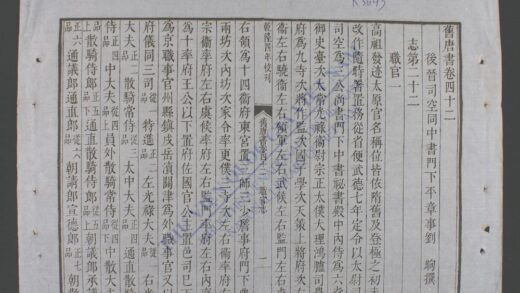 舊唐書卷四十二
後晉司空同中書門下平章事劉 昫撰
志第二十二
職官一
高祖發跡太原官名稱位皆依隋舊及登極之初
改作隨時署置務從省便武德七年定令以太尉司
司空為三公尚書門下中書祕書殿中內侍為六省
御史臺次太常光祿衞尉宗正太僕大理鴻臚司
府為九寺次將作監次國子學次天策上將府次
衞左右驍衞左右領軍左右武候左右監門左右
乾隆四年校刊
右領為十四衞府東宮置三師三少詹事府門下
兩坊次內坊次家令率更僕三寺次左右衞率府左
宗衞率府左右虞候率府左右監門率府左右內
為十率府王公以下置府佐國官公主置邑司已下
為京職事官州縣鎮戍岳瀆關津為外職事官又以
府儀同三司從一品特進正二品左光祿大夫從二品右光
大夫正三品散騎常侍從三品太中大夫
侍正四品中大夫從四品員外散騎常侍從四品中散大夫
上散騎侍郎正五品通直散騎侍郎從五品上朝議郎承議
正六品通議郎通直郎從六品朝請郎宣德郎正七品朝散